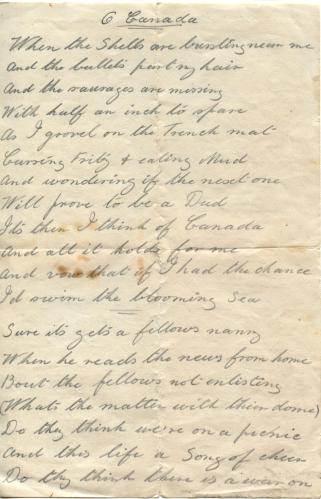 O Canada
When the Shells are bursting near me
And the bullets part my hair
And the sausages are missing
With half an inch to spare
As I grovel on the Trench mat
Cursing Fritz & eating Mud
And wondering if the next one
Will prove to be a Dud
Its then I think of Canada
And all it holds for me
And vow that if I had the chance
I'd swim the blooming Sea
Sure its gets a fellows nanny
When he reads the news from home
Bout the fellows not enlisting
(Whats the matter with their dome)
Do they think we're on a picnic
And this life a Song of cheer
Do they think there is a war on